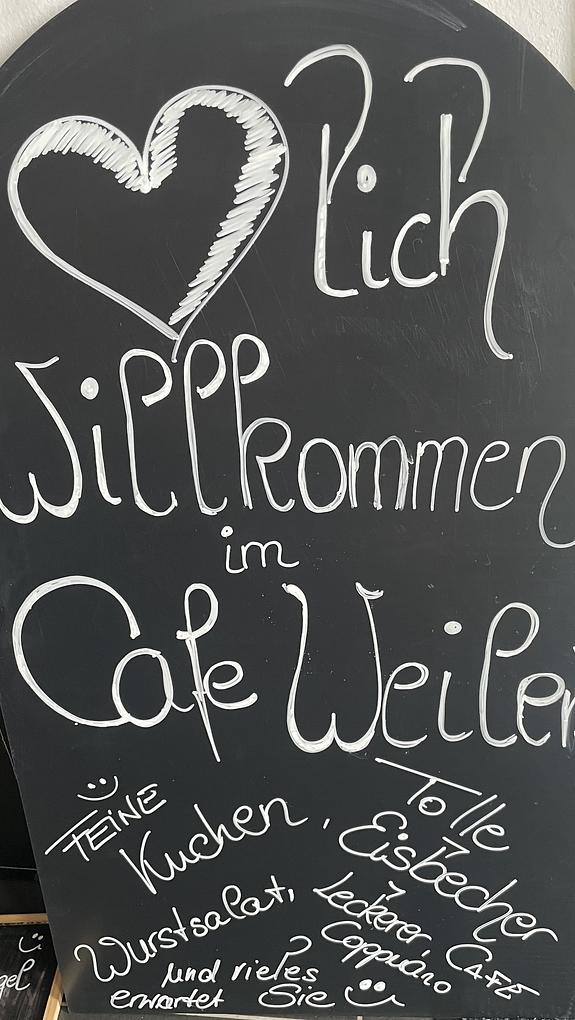 ♥lich
Willkommen
im
Cafe Weiler
FEINE
Kuchen,
Tolle
Eisbecher
Wurstsalat,
Leckerer CAFE
Coppuino
und vieles
erwartet Sie
gel